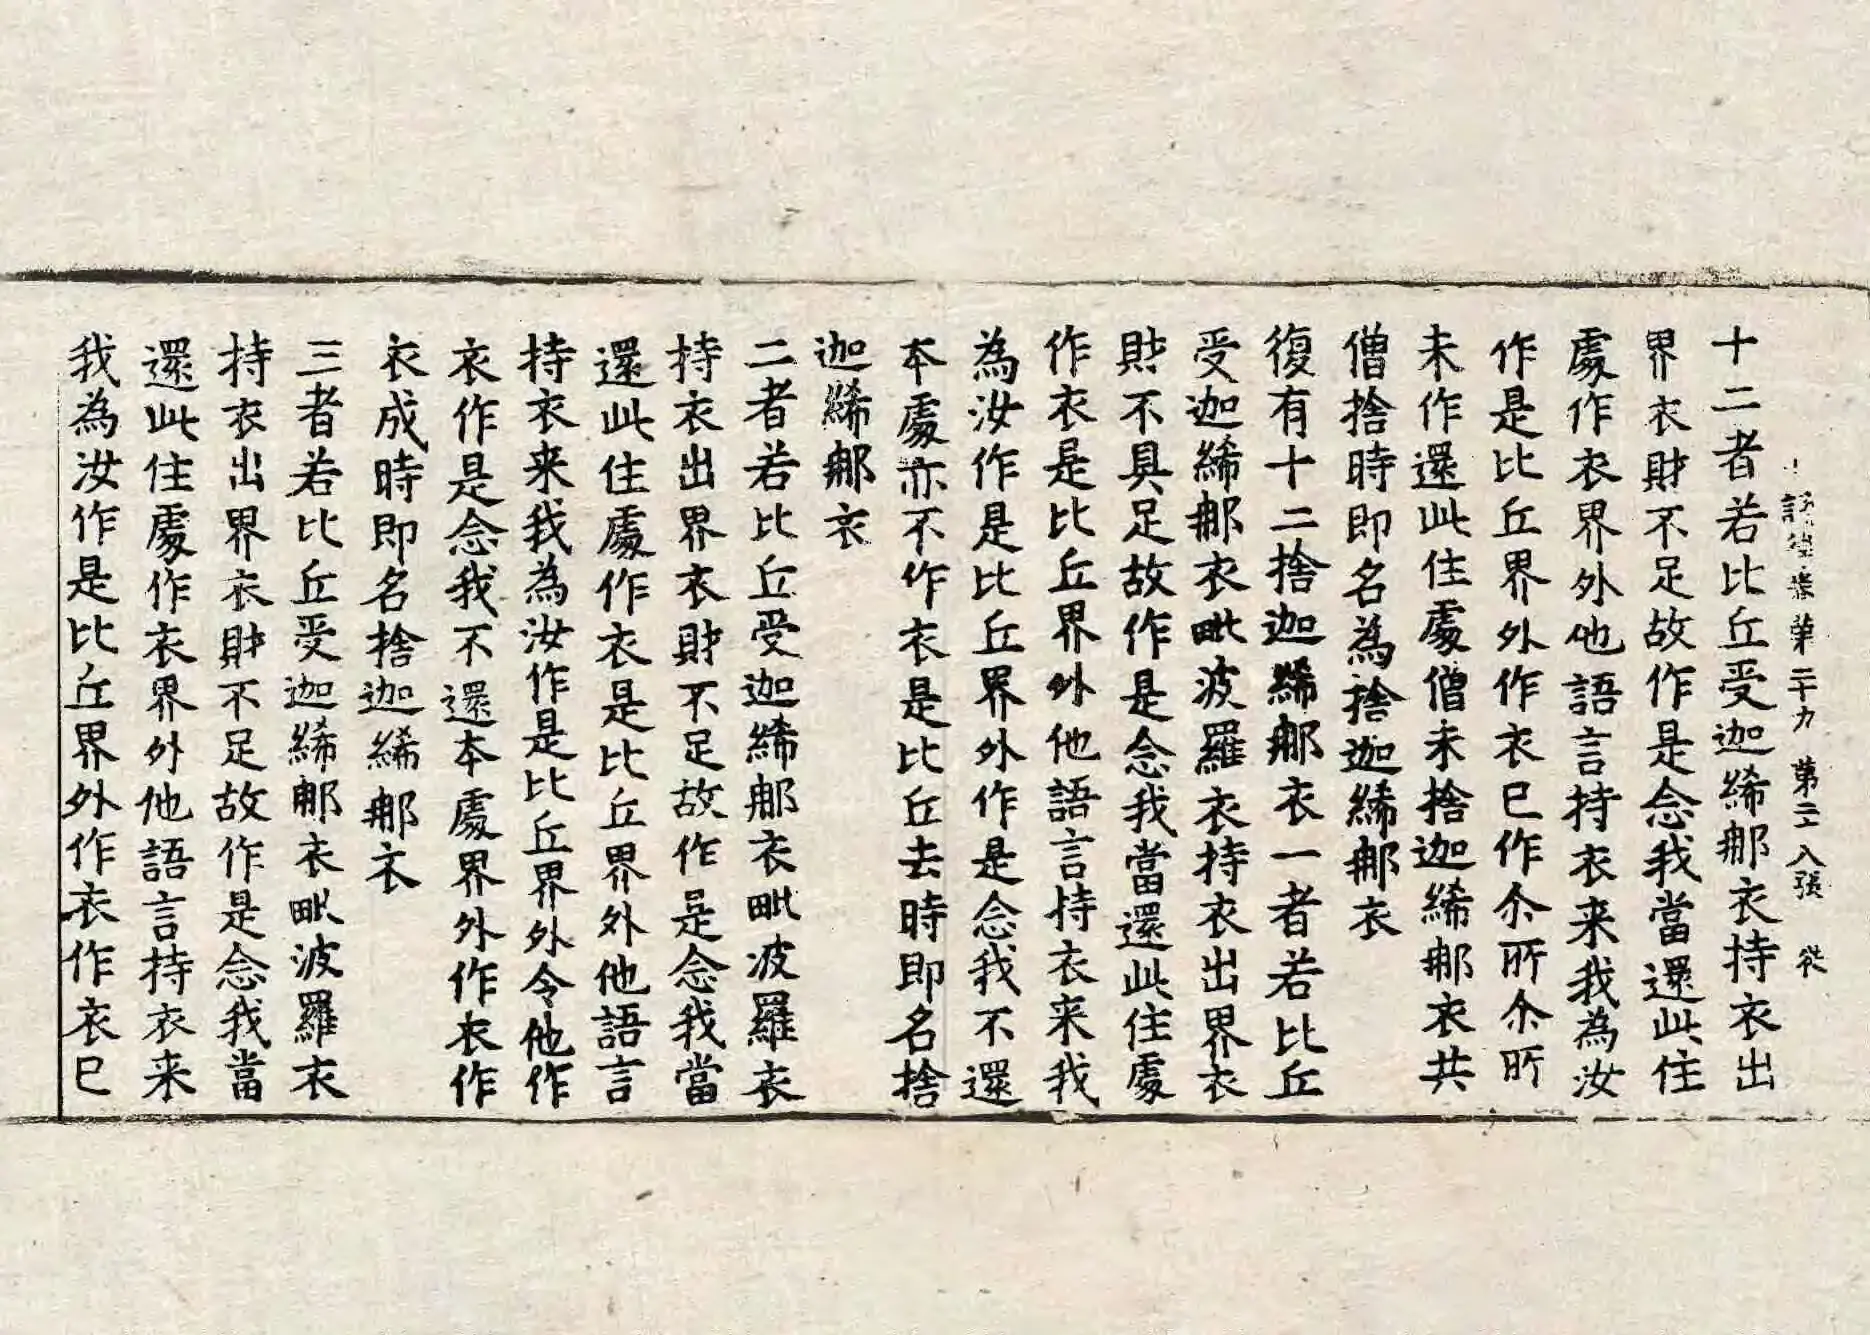 第二十九 第二八張 從
十二者若比丘受迦絺那衣持衣出
界衣財不足故作是念我當還此住
處作衣界外他語言持衣来我為汝
作是比丘界外作衣已作尒所尒所
未作還此住處僧未捨迦絺那衣共
僧捨時即名為捨迦絺那衣
復有十二捨迦絺那衣一者若比丘
受迦絺那衣毗波羅衣持衣出界衣
財不具足故作是念我當還此住處
作衣是比丘界外他語言持衣来我
為汝作是比丘界外作是念我不還
本處亦不作衣是比丘去時即名捨
迦絺那衣
二者若比丘受迦絺那衣毗波羅衣
持衣出界衣財不足故作是念我當
還此住處作衣是比丘界外他語言
持衣来我為汝作是比丘界外令他作
衣作是念我不還本處界外作衣作
衣成時即名捨迦絺那衣
三者若比丘受迦絺那衣毗波羅衣
持衣出界衣財不足故作是念我當
還此住處作衣界外他語言持衣来
我為汝作是比丘界外作衣作衣已